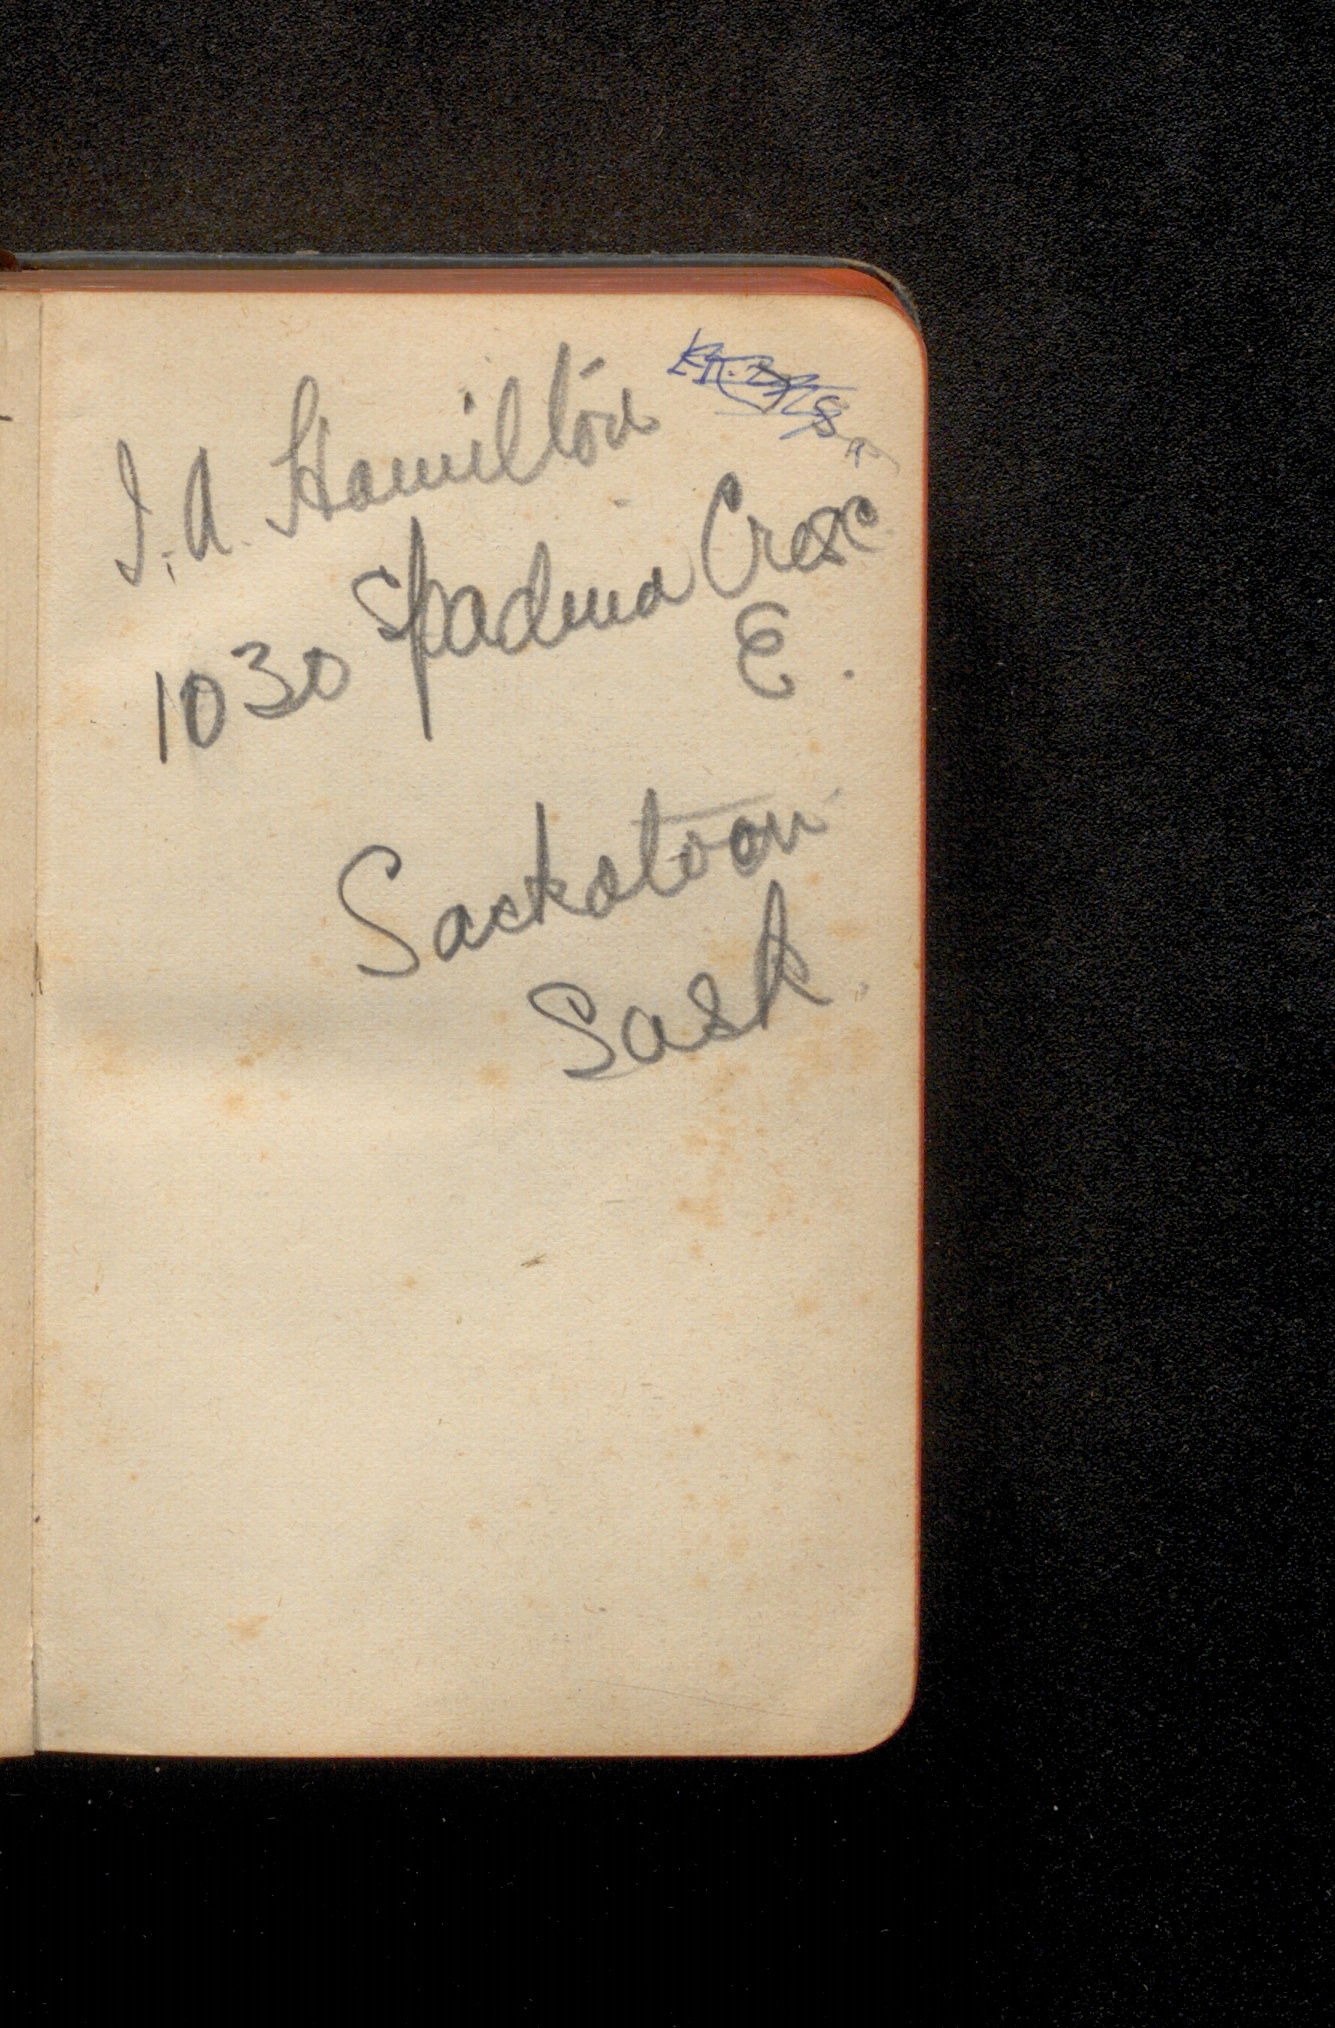 I. A. Hamilton
1030 Spadina Cresc
E.
Saskatoon
Sask